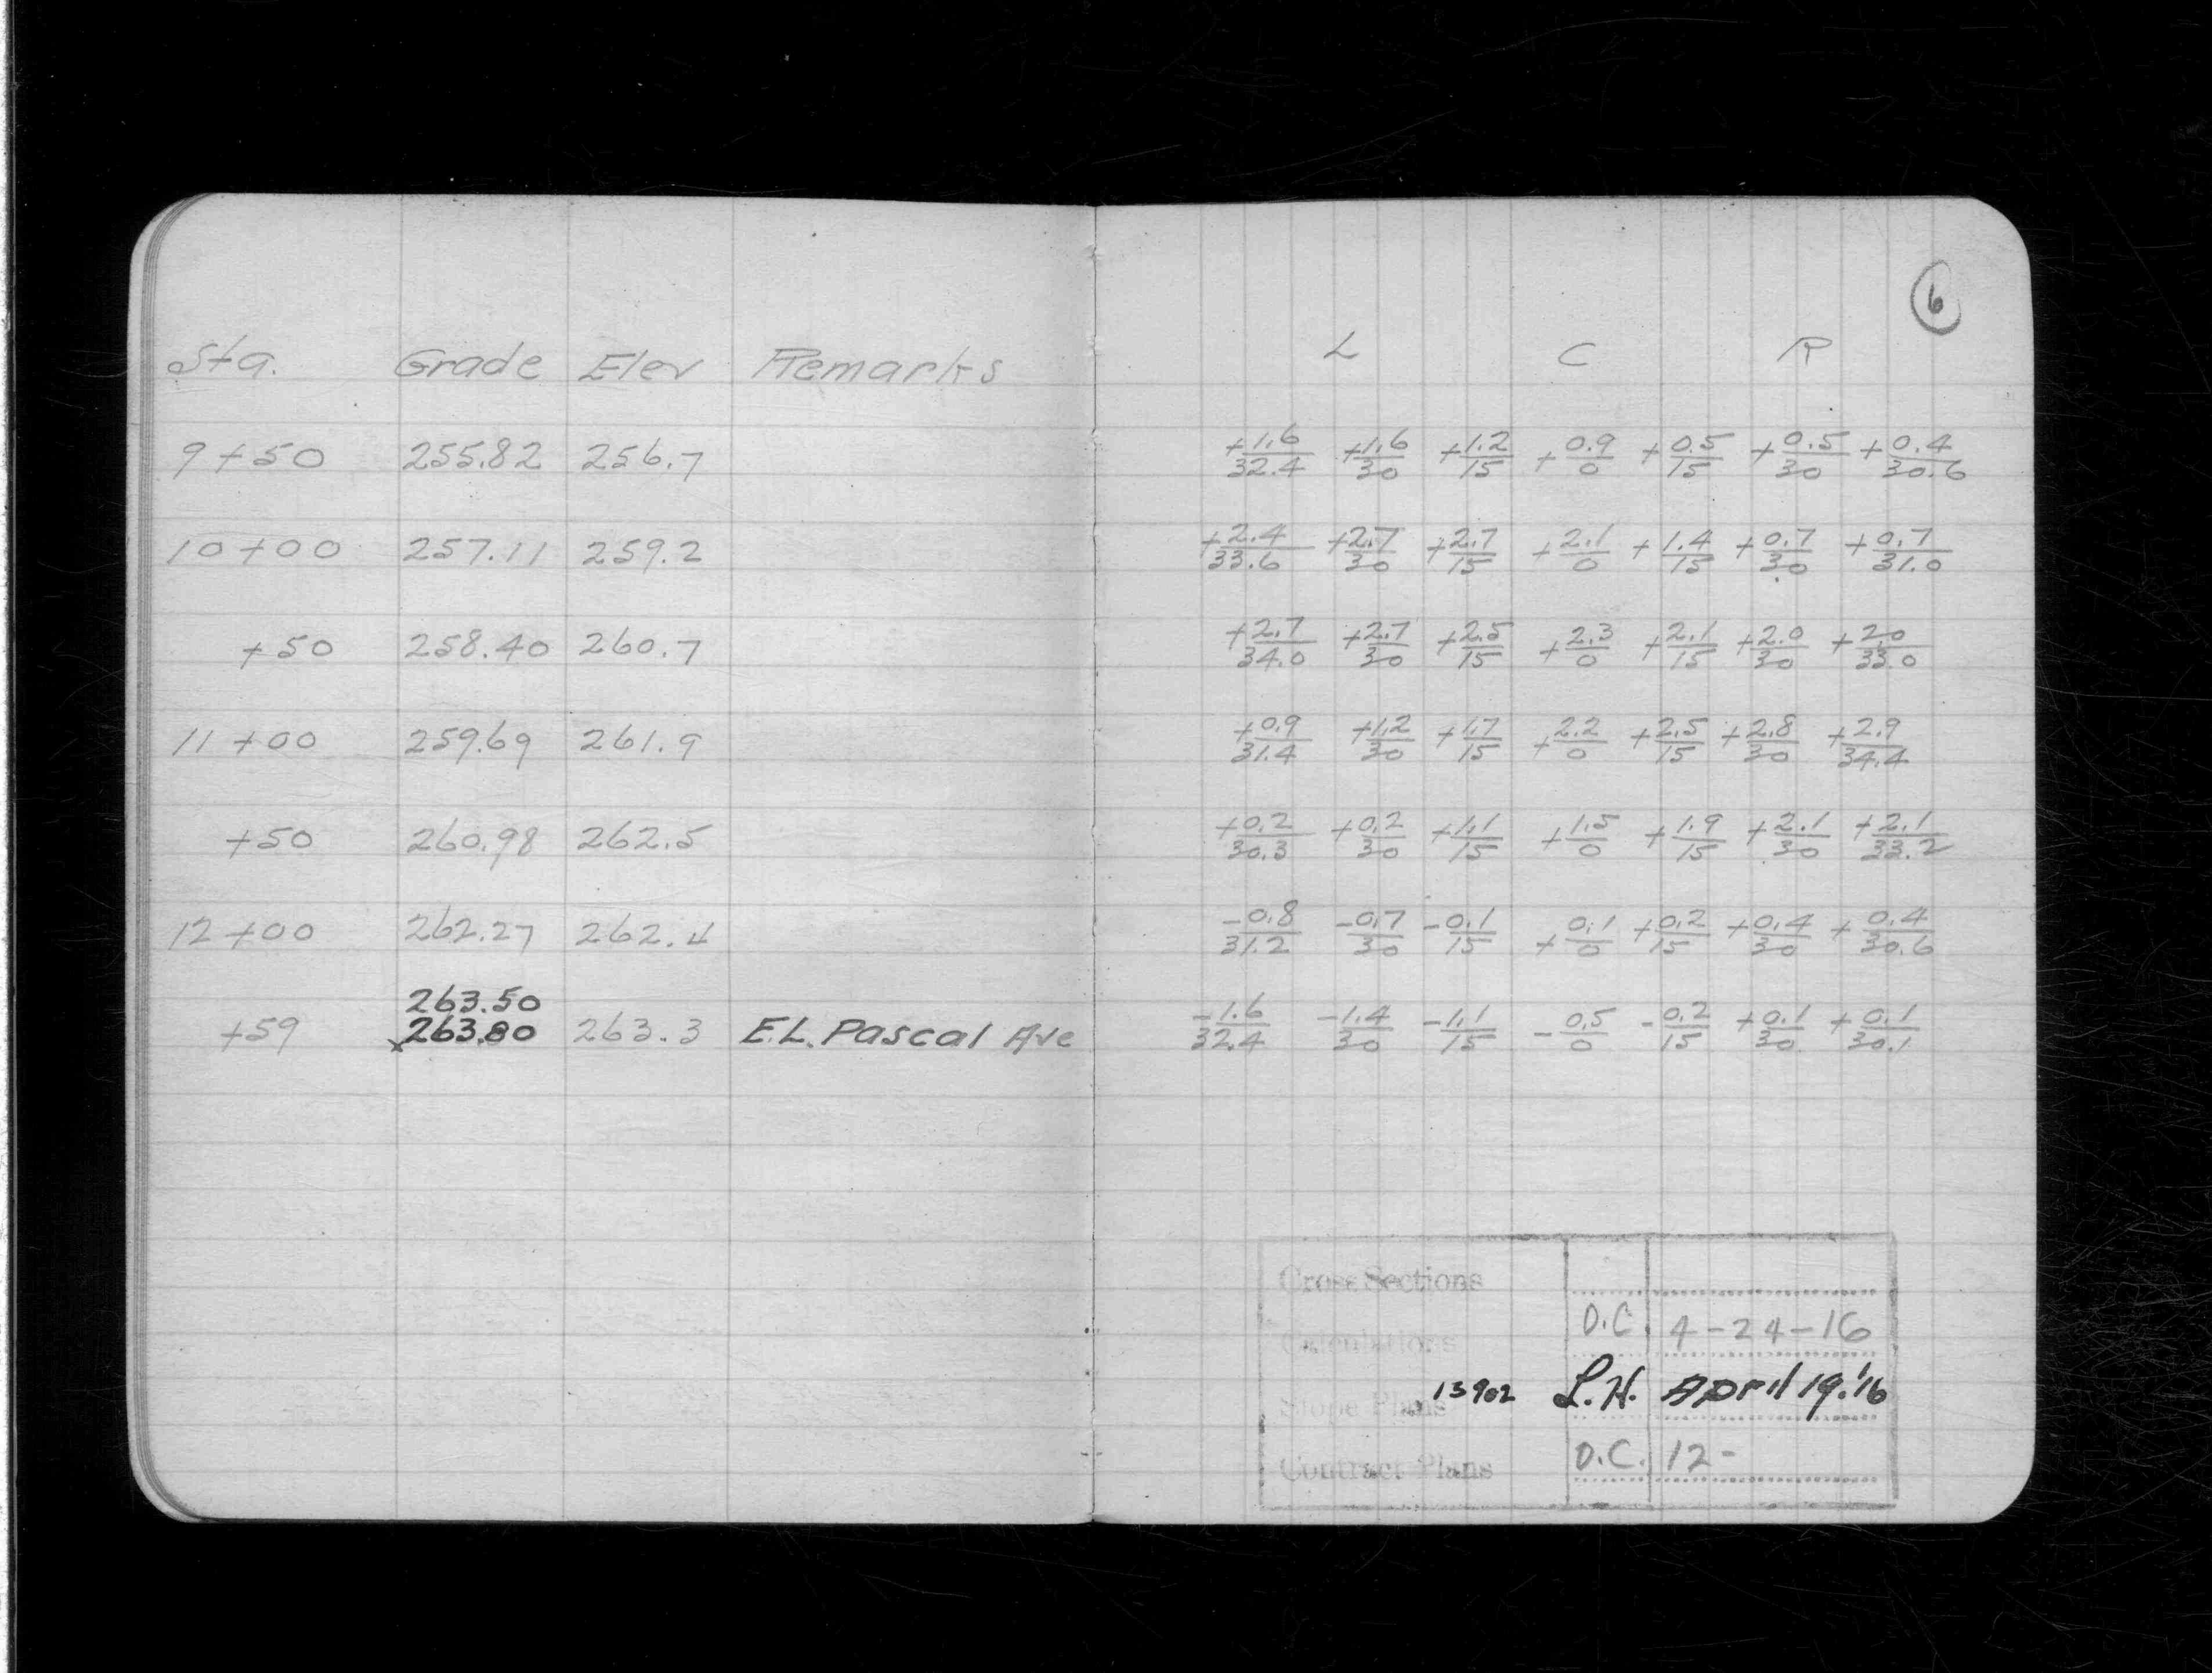 6
Sta. Grade Elev Remarks L C R
9+50 255.82 256.7 +1.6/32.4 +1.6/30 +1.2/15 +0.9/0 +0.5/15 +0.5/30 +0.4/30.6
10+00 257.11 259.2 +2.4/33.6 +2.7/30 +2.7/15 +2.1/0 +1.4/15 +0.7/30 +0.7/31.0
+50 258.40 260.7 +2.7/34.0 +2.7/30 +2.5/15 +2.3/0 +2.1/15 +2.0/30 +2.0/33.0
11+00 259.69 261.9 +0.9/31.4 +1.2/30 +1.7/15 +2.2/0 +2.5/15 +2.8/30 +2.9/34.4
+50 260.98 262.5 +0.2/30.3 +0.2/30 +1.1/15 +1.5/0 +1.9/15 +2.1/30 +2.1/33.2
12+00 262.27 262.4 -0.8/31.2 -0.7/30 -0.1/15 +0.1/0 +0.2/15 +0.4/30 +0.4/30.6
263.50
+59 x263.80 263.3 E.L. Pascal Ave -1.6/32.4 -1.4/30 -1.1/15 -0.5/0 -0.2/15 +0.1/30 +0.1/30.1
Cross Sections
Calculations D.C. 4-24-16
Slope Plans 13902 L.H. April 19.'16
Contract Plans D.C. 12-